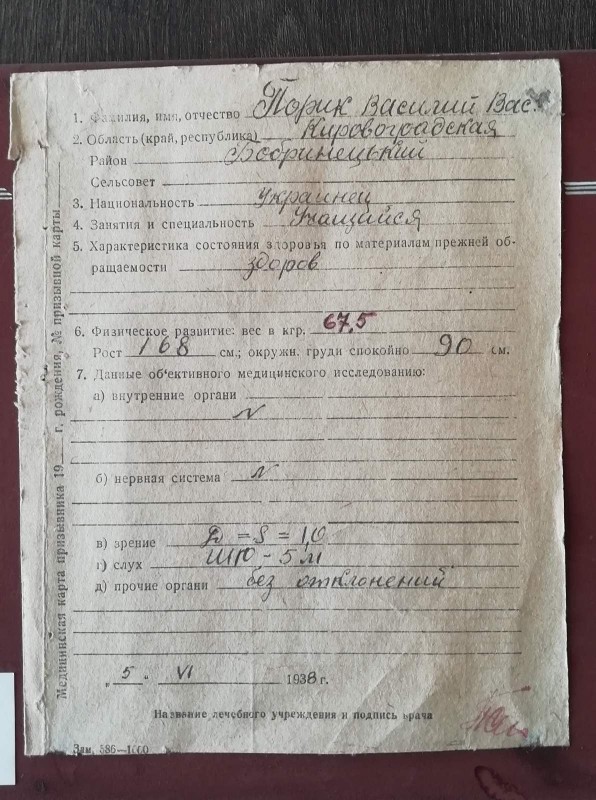 1. Фамилия, имя, отчество Порик Василий Вас.
2. Область (край, республика) Кировоградская
Район Бобринецький
Сельсовет
3. Национальность Украинец
4. Занятия и специальность Учащийся
5. Характеристика состояния здоровья по материалам прежней об-
ращаемости здоров
6. Физическое развитие: вес в кгр. 67,5
Рост 168 см.; окружн. груди спокойно 90 см.
7. Данные об'ективного медицинского исследованию:
а) внутренние органи
N
б) нервная система N
в) зрение D = S = 1,0
г) слух шю - 5 м
д) прочие органи без отклонений
„ 5 “ VI 1938 г.
Название лечебного учреждения и подпись врача
Зам. 586—1000
Медицинская карта призывника 19 г. рождения, № призывной карты